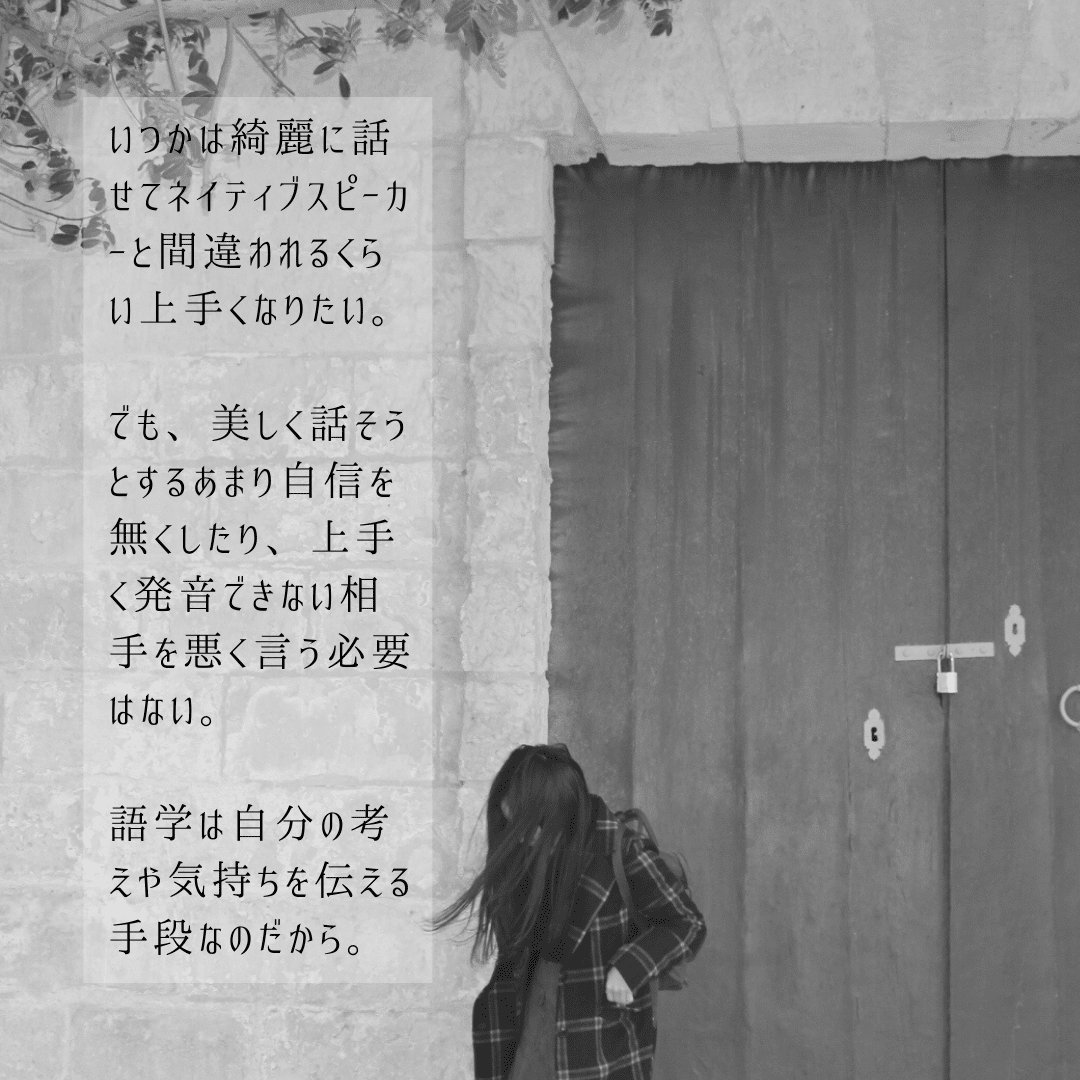 いつかは綺麗に話
せてネイティブスピーカ
ーと間違われるくら
い上手くなりたい。
でも、美しく話そう
とするあまり自信を
無くしたり、上手
く発音できない相
手を悪く言う必要
はない。
語学は自分の考
えや気持ちを伝える
手段なのだから。